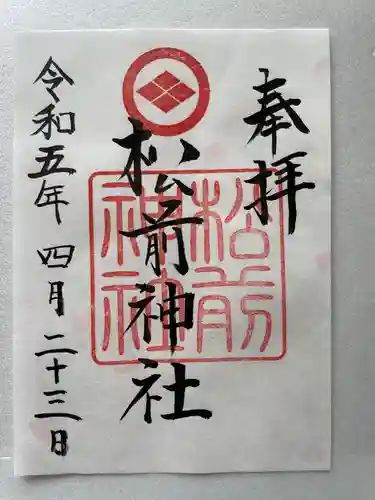 奉拝
松前神社
松前
神社
令和五年 四月二十三日